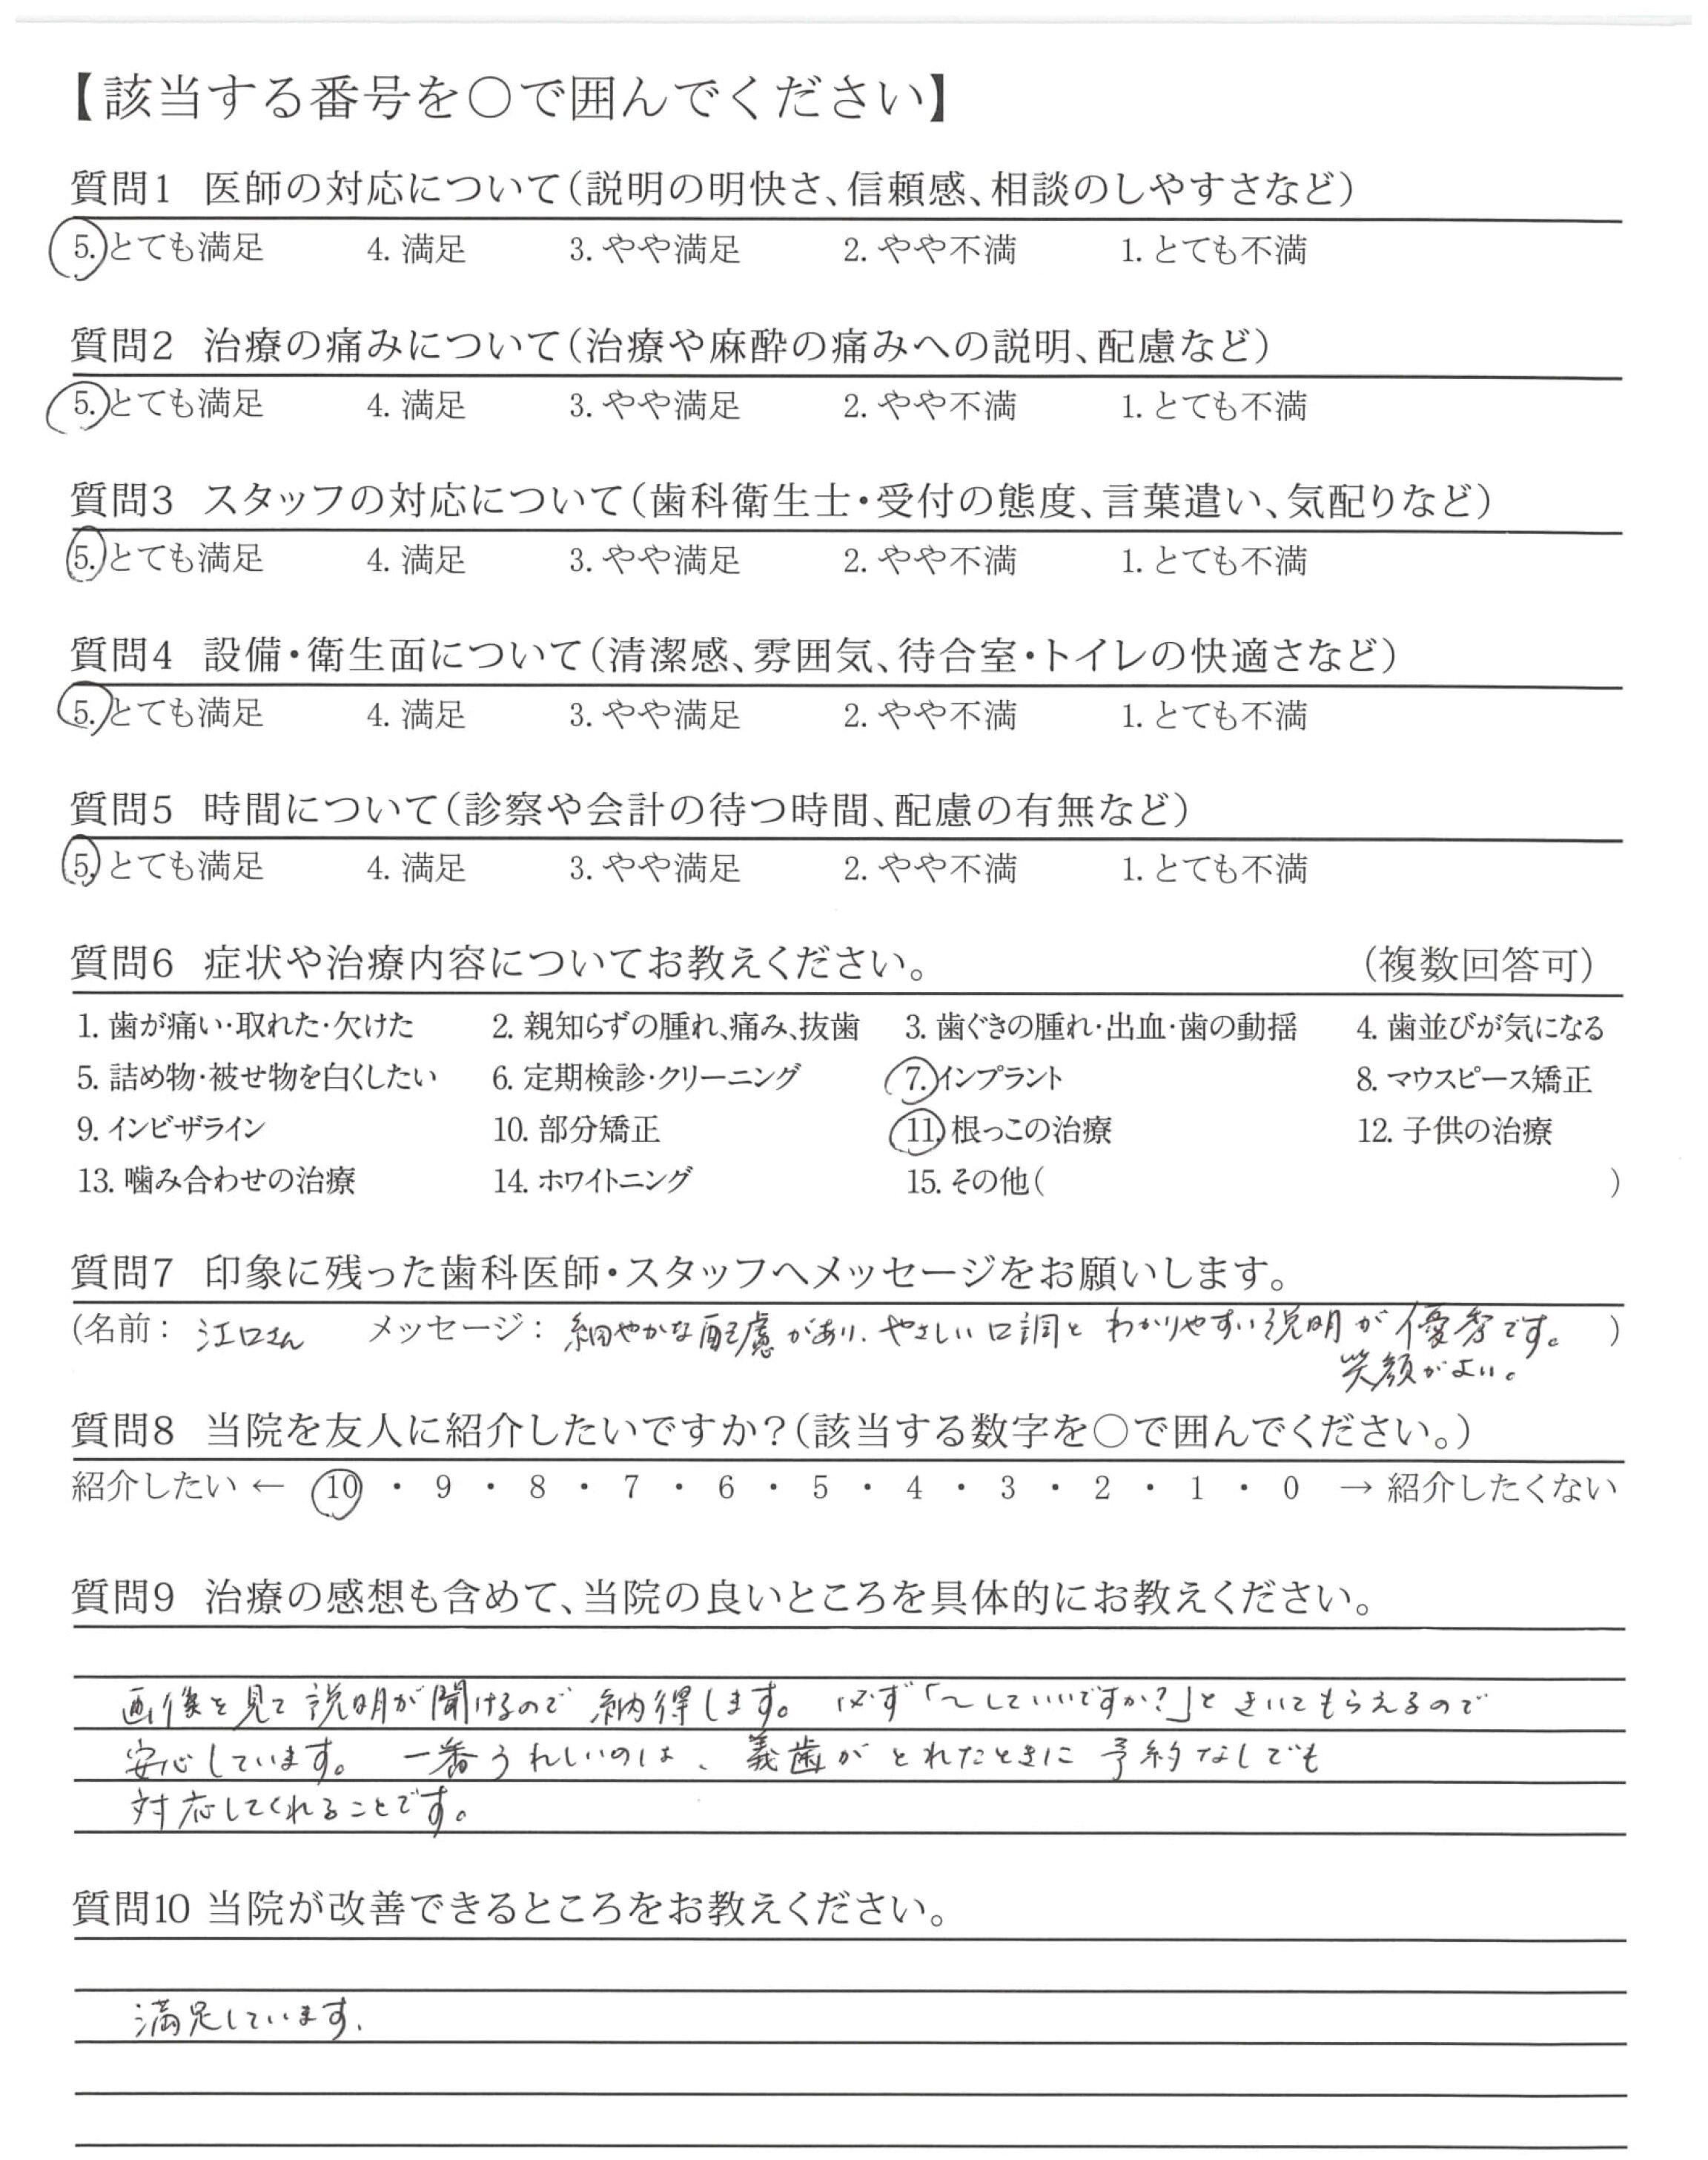 【該当する番号を○で囲んでください】
質問1 医師の対応について(説明の明快さ、信頼感、相談のしやすさなど)
5. とても満足 4. 満足 3. やや満足 2. やや不満 1. とても不満
質問2 治療の痛みについて(治療や麻酔の痛みへの説明、配慮など)
5. とても満足 4. 満足 3. やや満足 2. やや不満 1. とても不満
質問3 スタッフの対応について(歯科衛生士・受付の態度、言葉遣い、気配りなど)
5. とても満足 4. 満足 3. やや満足 2. やや不満 1. とても不満
質問4 設備・衛生面について(清潔感、雰囲気、待合室・トイレの快適さなど)
5. とても満足 4. 満足 3. やや満足 2. やや不満 1. とても不満
質問5 時間について(診察や会計の待つ時間、配慮の有無など)
5. とても満足 4. 満足 3. やや満足 2. やや不満 1. とても不満
質問6 症状や治療内容についてお教えください。 (複数回答可)
1. 歯が痛い・取れた・欠けた 2. 親知らずの腫れ、痛み、抜歯 3. 歯ぐきの腫れ・出血・歯の動揺 4. 歯並びが気になる
5. 詰め物・被せ物を白くしたい 6. 定期検診・クリーニング 7. インプラント 8. マウスピース矯正
9. インビザライン 10. 部分矯正 11. 根っこの治療 12. 子供の治療
13. 噛み合わせの治療 14. ホワイトニング 15. その他( )
質問7 印象に残った歯科医師・スタッフへメッセージをお願いします。
(名前: 江口さん メッセージ: 細やかな配慮があり、やさしい口調と わかりやすい説明が優秀です。 )
笑顔がよい。
質問8 当院を友人に紹介したいですか?(該当する数字を○で囲んでください。)
紹介したい ← 10 ・ 9 ・ 8 ・ 7 ・ 6 ・ 5 ・ 4 ・ 3 ・ 2 ・ 1 ・ 0 → 紹介したくない
質問9 治療の感想も含めて、当院の良いところを具体的にお教えください。
画像を見て説明が聞けるので納得します。必ず「〜していいですか?」ときいてもらえるので
安心しています。一番うれしいのは、義歯がとれたときに予約なしでも
対応してくれることです。
質問10 当院が改善できるところをお教えください。
満足しています.